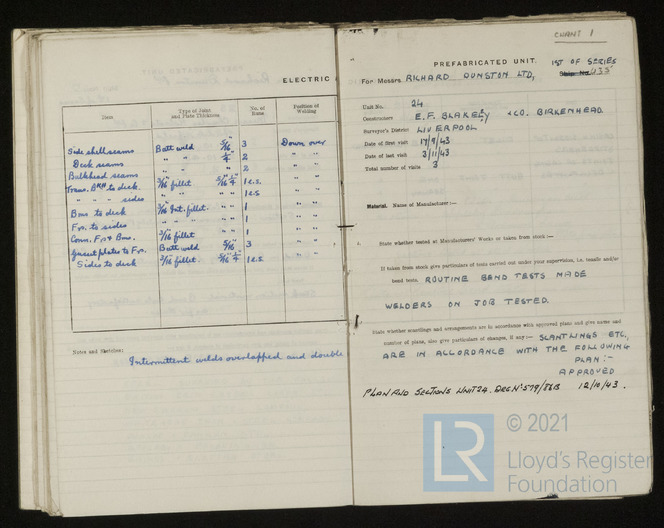 ELECTRIC
Item
Type of Joint and Plate Thickness
No. of Runs
Position of Welding
Side shell seams Butt weld 5/16" 3 Down over
Deck seams " " 1/4" 2 " "
Bulkhead seams " " " 2 " "
Trans. Bhd to deck 3/16" fillet 5/16" 1/4" 1 e.s. " "
" " " sides " " 1 e.s. " "
Bms to deck 3/16" Int. fillet. " 1 " "
Frs. to sides " " " " 1 " "
Conn. Frs & Bms. 3/16" fillet " 1 " "
Gusset plates to Frs. Butt weld 5/16" 3 " "
Sides to deck 3/16" fillet. 5/16" 1/4" 1 e.s. " "
Notes and Sketches:
Intermittent welds overlapped and double
CHANT 1
PREFABRICATED UNIT.
1ST OF SERIES
For Messrs. RICHARD DUNSTON LTD, Ship No. 435
Unit No. 24
Constructors E.F. BLAKELY & CO. BIRKENHEAD
Surveyor's District LIVERPOOL
Date of first visit 17/9/43
Date of last visit 3/11/43
Total number of visits 3
Material. Name of Manufacturer:—
State whether tested at Manufacturers' Works or taken from stock:—
If taken from stock give particulars of tests carried out under your supervision, i.e. tensile and/or
bend tests. ROUTINE BEND TESTS MADE
WELDERS ON JOB TESTED.
State whether scantlings and arrangements are in accordance with approved plans and give name and
number of plans, also give particulars of changes, if any:— SCANTLINGS ETC.,
ARE IN ACCORDANCE WITH THE FOLLOWING
PLAN:-
APPROVED
PLAN AND SECTIONS UNIT 24. DRG Nº 579/86B 12/10/43.
LR
© 2021
Lloyd's Register
Foundation